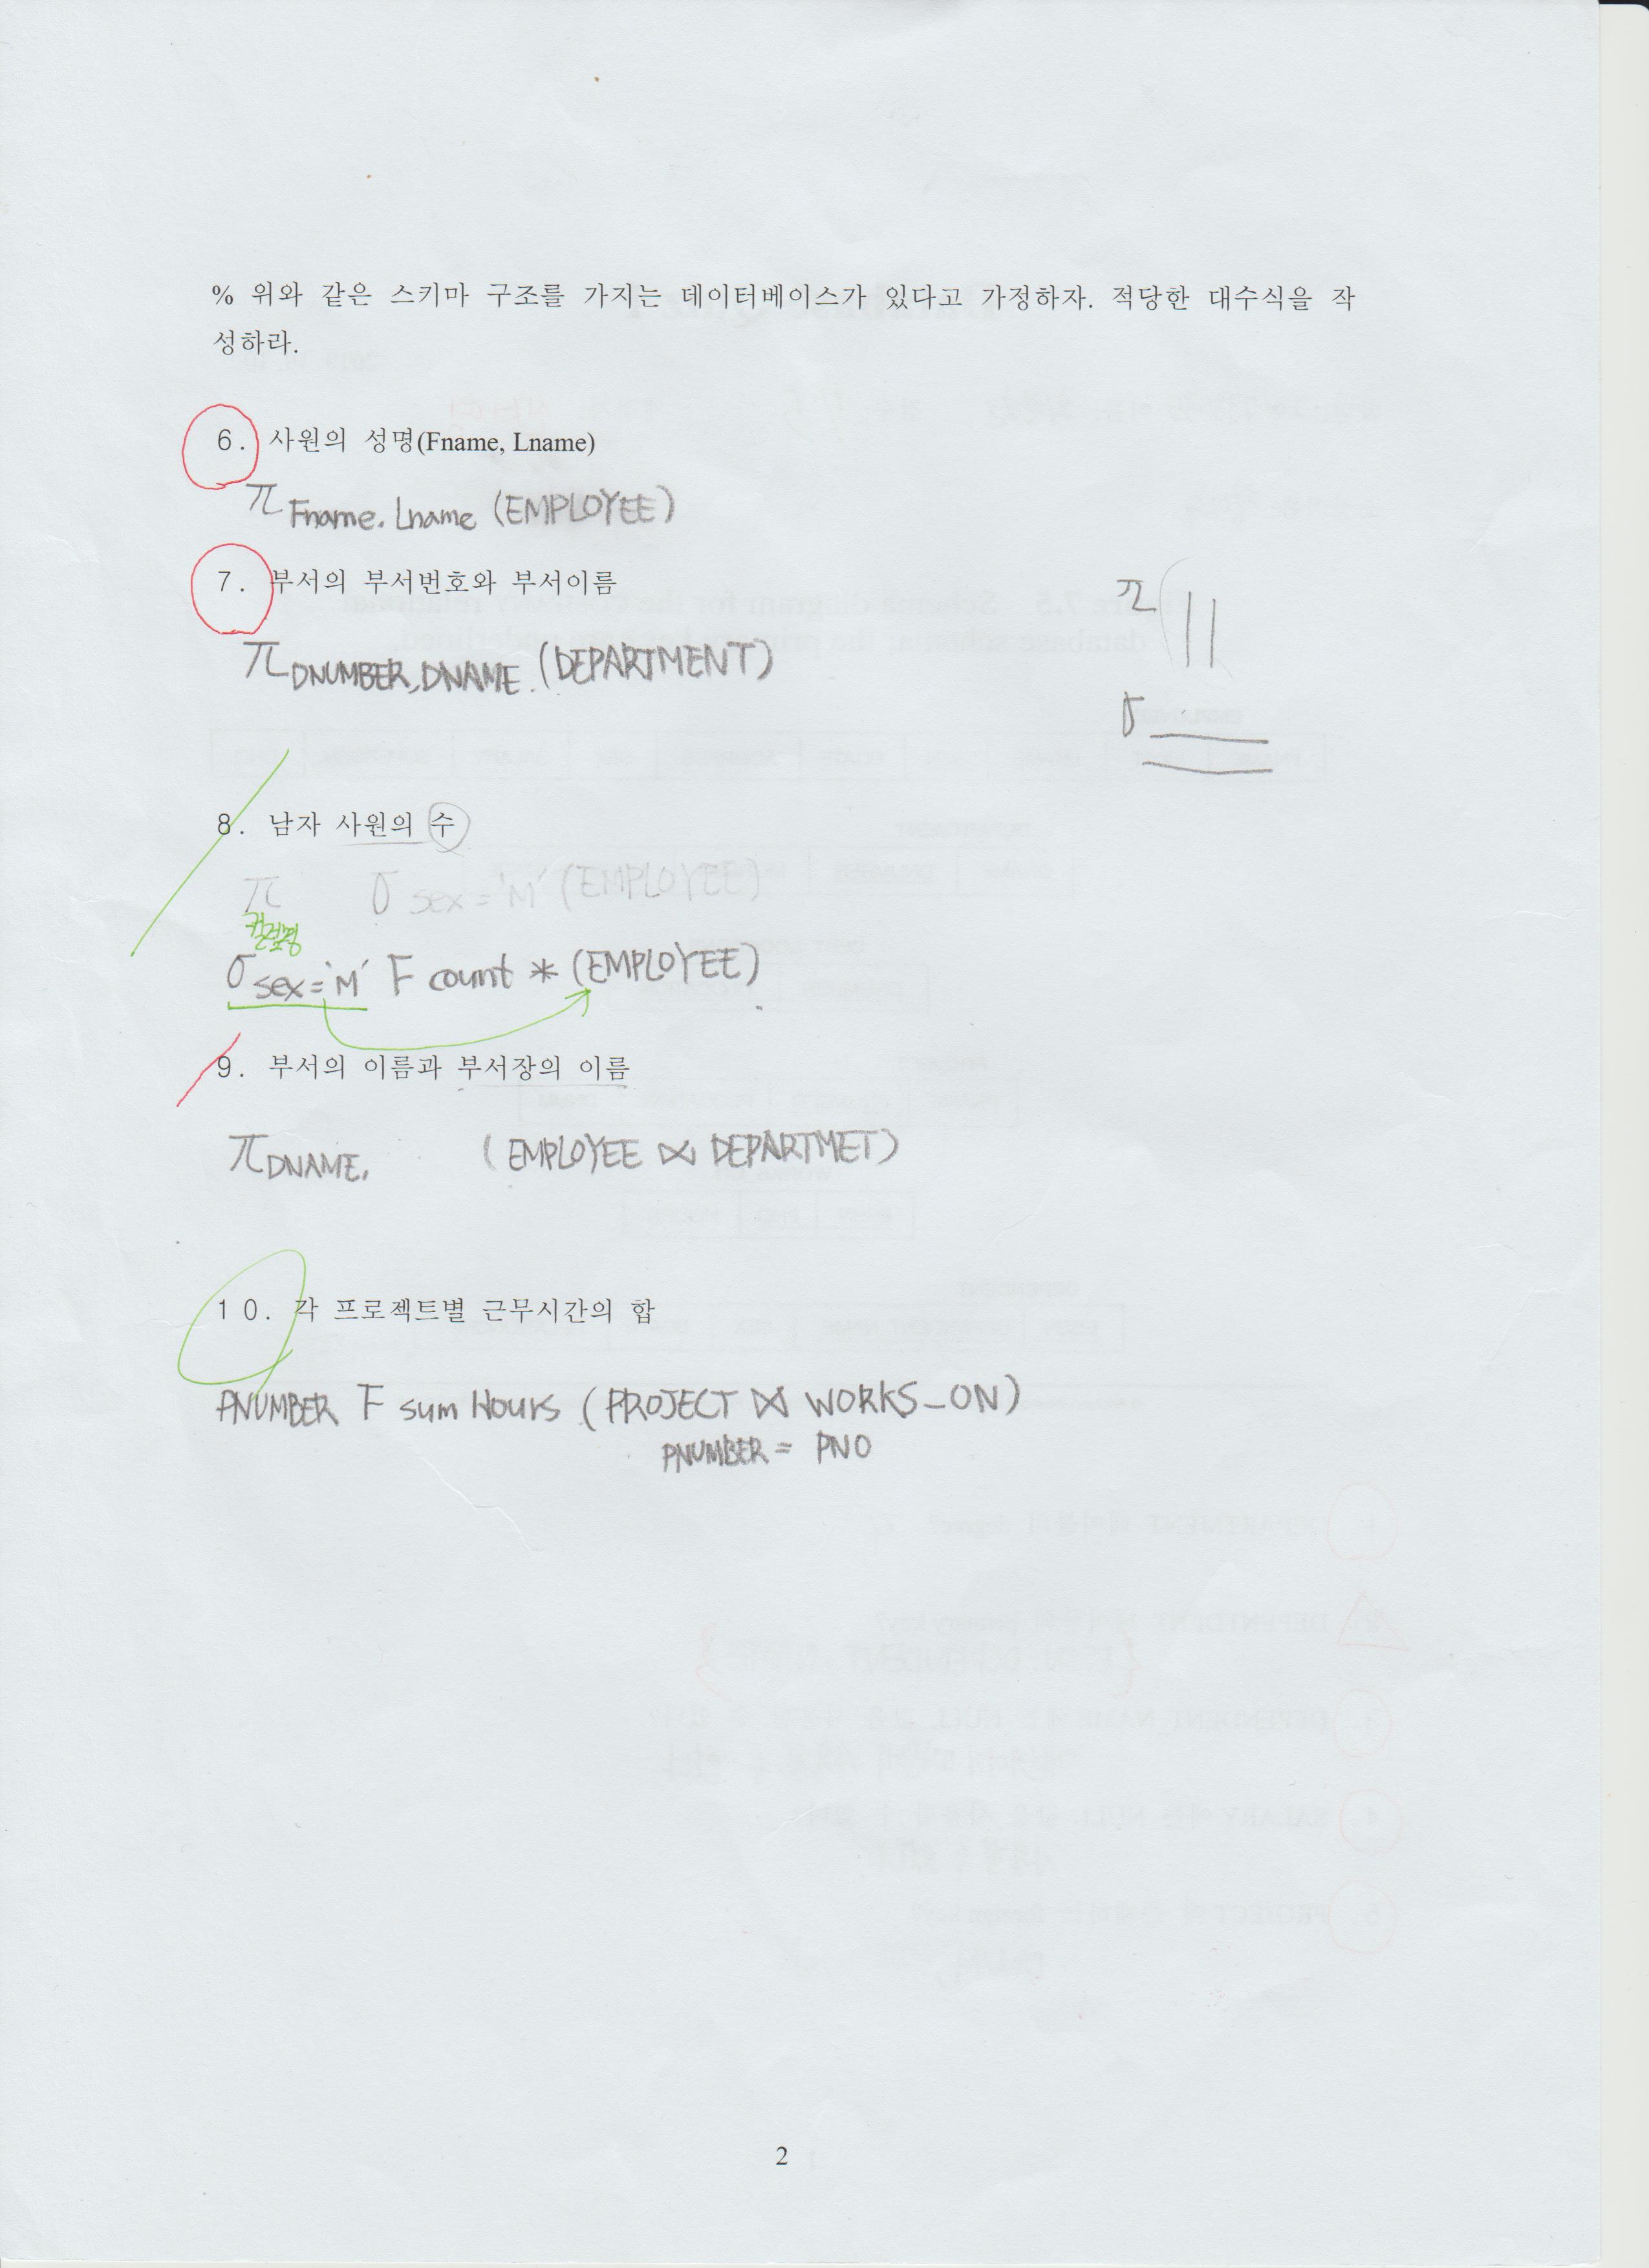 % 위와 같은 스키마 구조를 가지는 데이터베이스가 있다고 가정하자. 적당한 대수식을 작
성하라.
6. 사원의 성명(Fname, Lname)
π Fname. Lname (EMPLOYEE)
7. 부서의 부서번호와 부서이름
π DNUMBER, DNAME (DEPARTMENT)
π
σ
8. 남자 사원의 수
π σ sex = 'M' (EMPLOYEE)
σ sex = 'M' F count * (EMPLOYEE)
9. 부서의 이름과 부서장의 이름
π DNAME, (EMPLOYEE ⋈ DEPARTMET)
10. 각 프로젝트별 근무시간의 합
PNUMBER F sum Hours (PROJECT ⋈ WORKS_ON)
PNUMBER = PNO
2